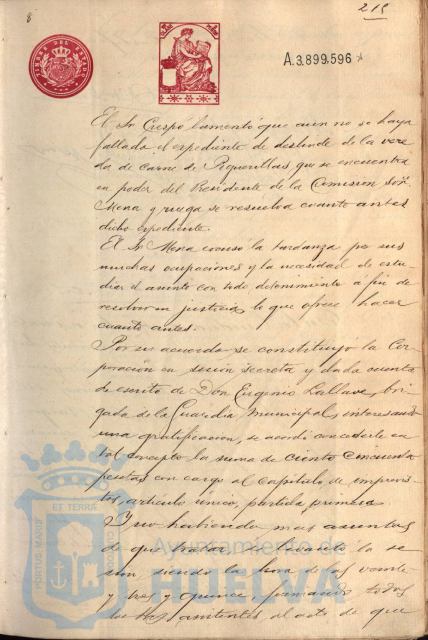 8
215
TIMBRE DEL ESTADO
A.3.899.596
El Sr. Crespo lamentó que aun no se haya
fallado el expediente de deslinde de la vere
da de carne de Piguerillas, que se encuentra
en poder del Presidente de la Comision Señ.
Mena y ruega se resuelva cuanto antes
dicho expediente.
El Sr Mena excusó la tardanza por sus
muchas ocupaciones y la necesidad de estu-
diar el asunto con todo detenimiento a fin de
resolver en justicia, lo que ofrece hacer
cuanto antes.
Por su acuerdo se constituyó la Cor
poración en sesión secreta y dada cuenta
de escrito de Don Eugenio Lallave, bri
gada de la Guardia Municipal, interesando
una gratificacion, se acordó concederle en
tal concepto la suma de ciento cincuenta
pesetas con cargo al Capitulo de imprevis
tos, articulo único, partida primera
Y no habiendo mas asuntos
de que tratar, se levantó la se
sion, siendo la hora de las veinte
y tres y quince, firmando todos
los asistentes al acto de que
PORTUS MARIS ET TERRAE CUSTODIA
Ayuntamiento de
HUELVA